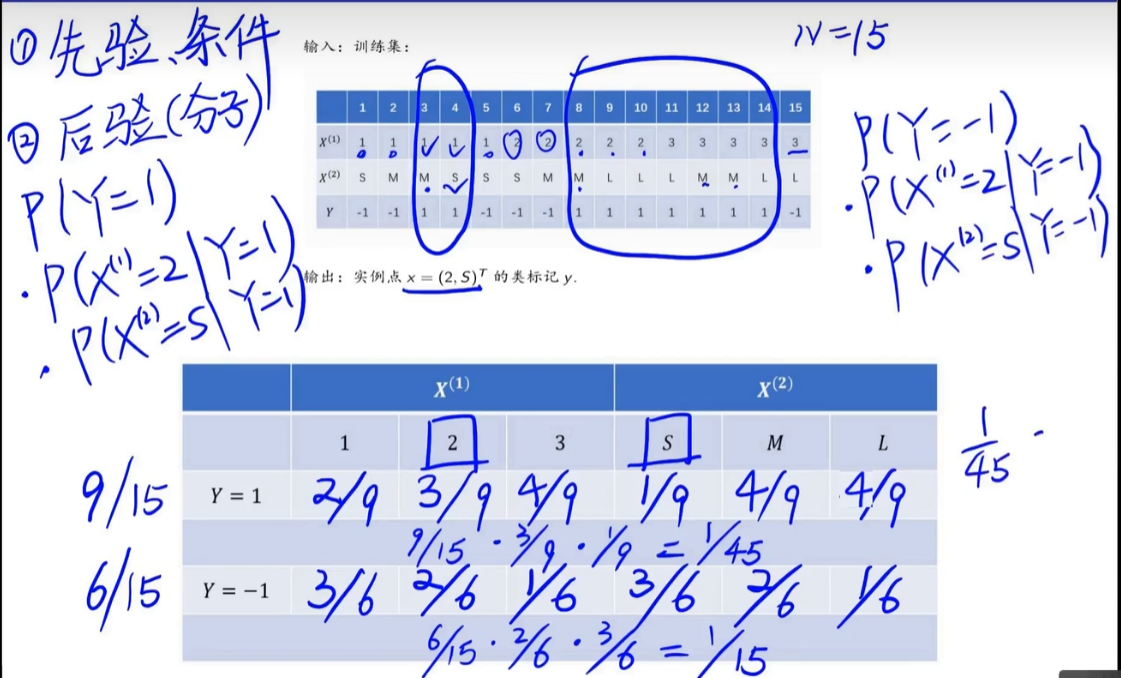 ①先验、条件
②后验(分子)
P(Y=1)
·P(X⁽¹⁾=2|Y=1)
·P(X⁽²⁾=S|Y=1)
输入：训练集：
N=15
1 2 3 4 5 6 7 8 9 10 11 12 13 14 15
X⁽¹⁾ 1 1 1 1 1 2 2 2 2 2 3 3 3 3 3
X⁽²⁾ S M M S S S M M L L L M M L L
Y -1 -1 1 1 -1 -1 -1 1 1 1 1 1 1 1 -1
输出：实例点 x = (2, S)ᵀ 的类标记 y.
P(Y=-1)
·P(X⁽¹⁾=2|Y=-1)
·P(X⁽²⁾=S|Y=-1)
X⁽¹⁾ X⁽²⁾
1 2 3 S M L
9/15 Y = 1 2/9 3/9 4/9 1/9 4/9 4/9
9/15 · 3/9 · 1/9 = 1/45
6/15 Y = −1 3/6 2/6 1/6 3/6 2/6 1/6
6/15 · 2/6 · 3/6 = 1/15
1/45